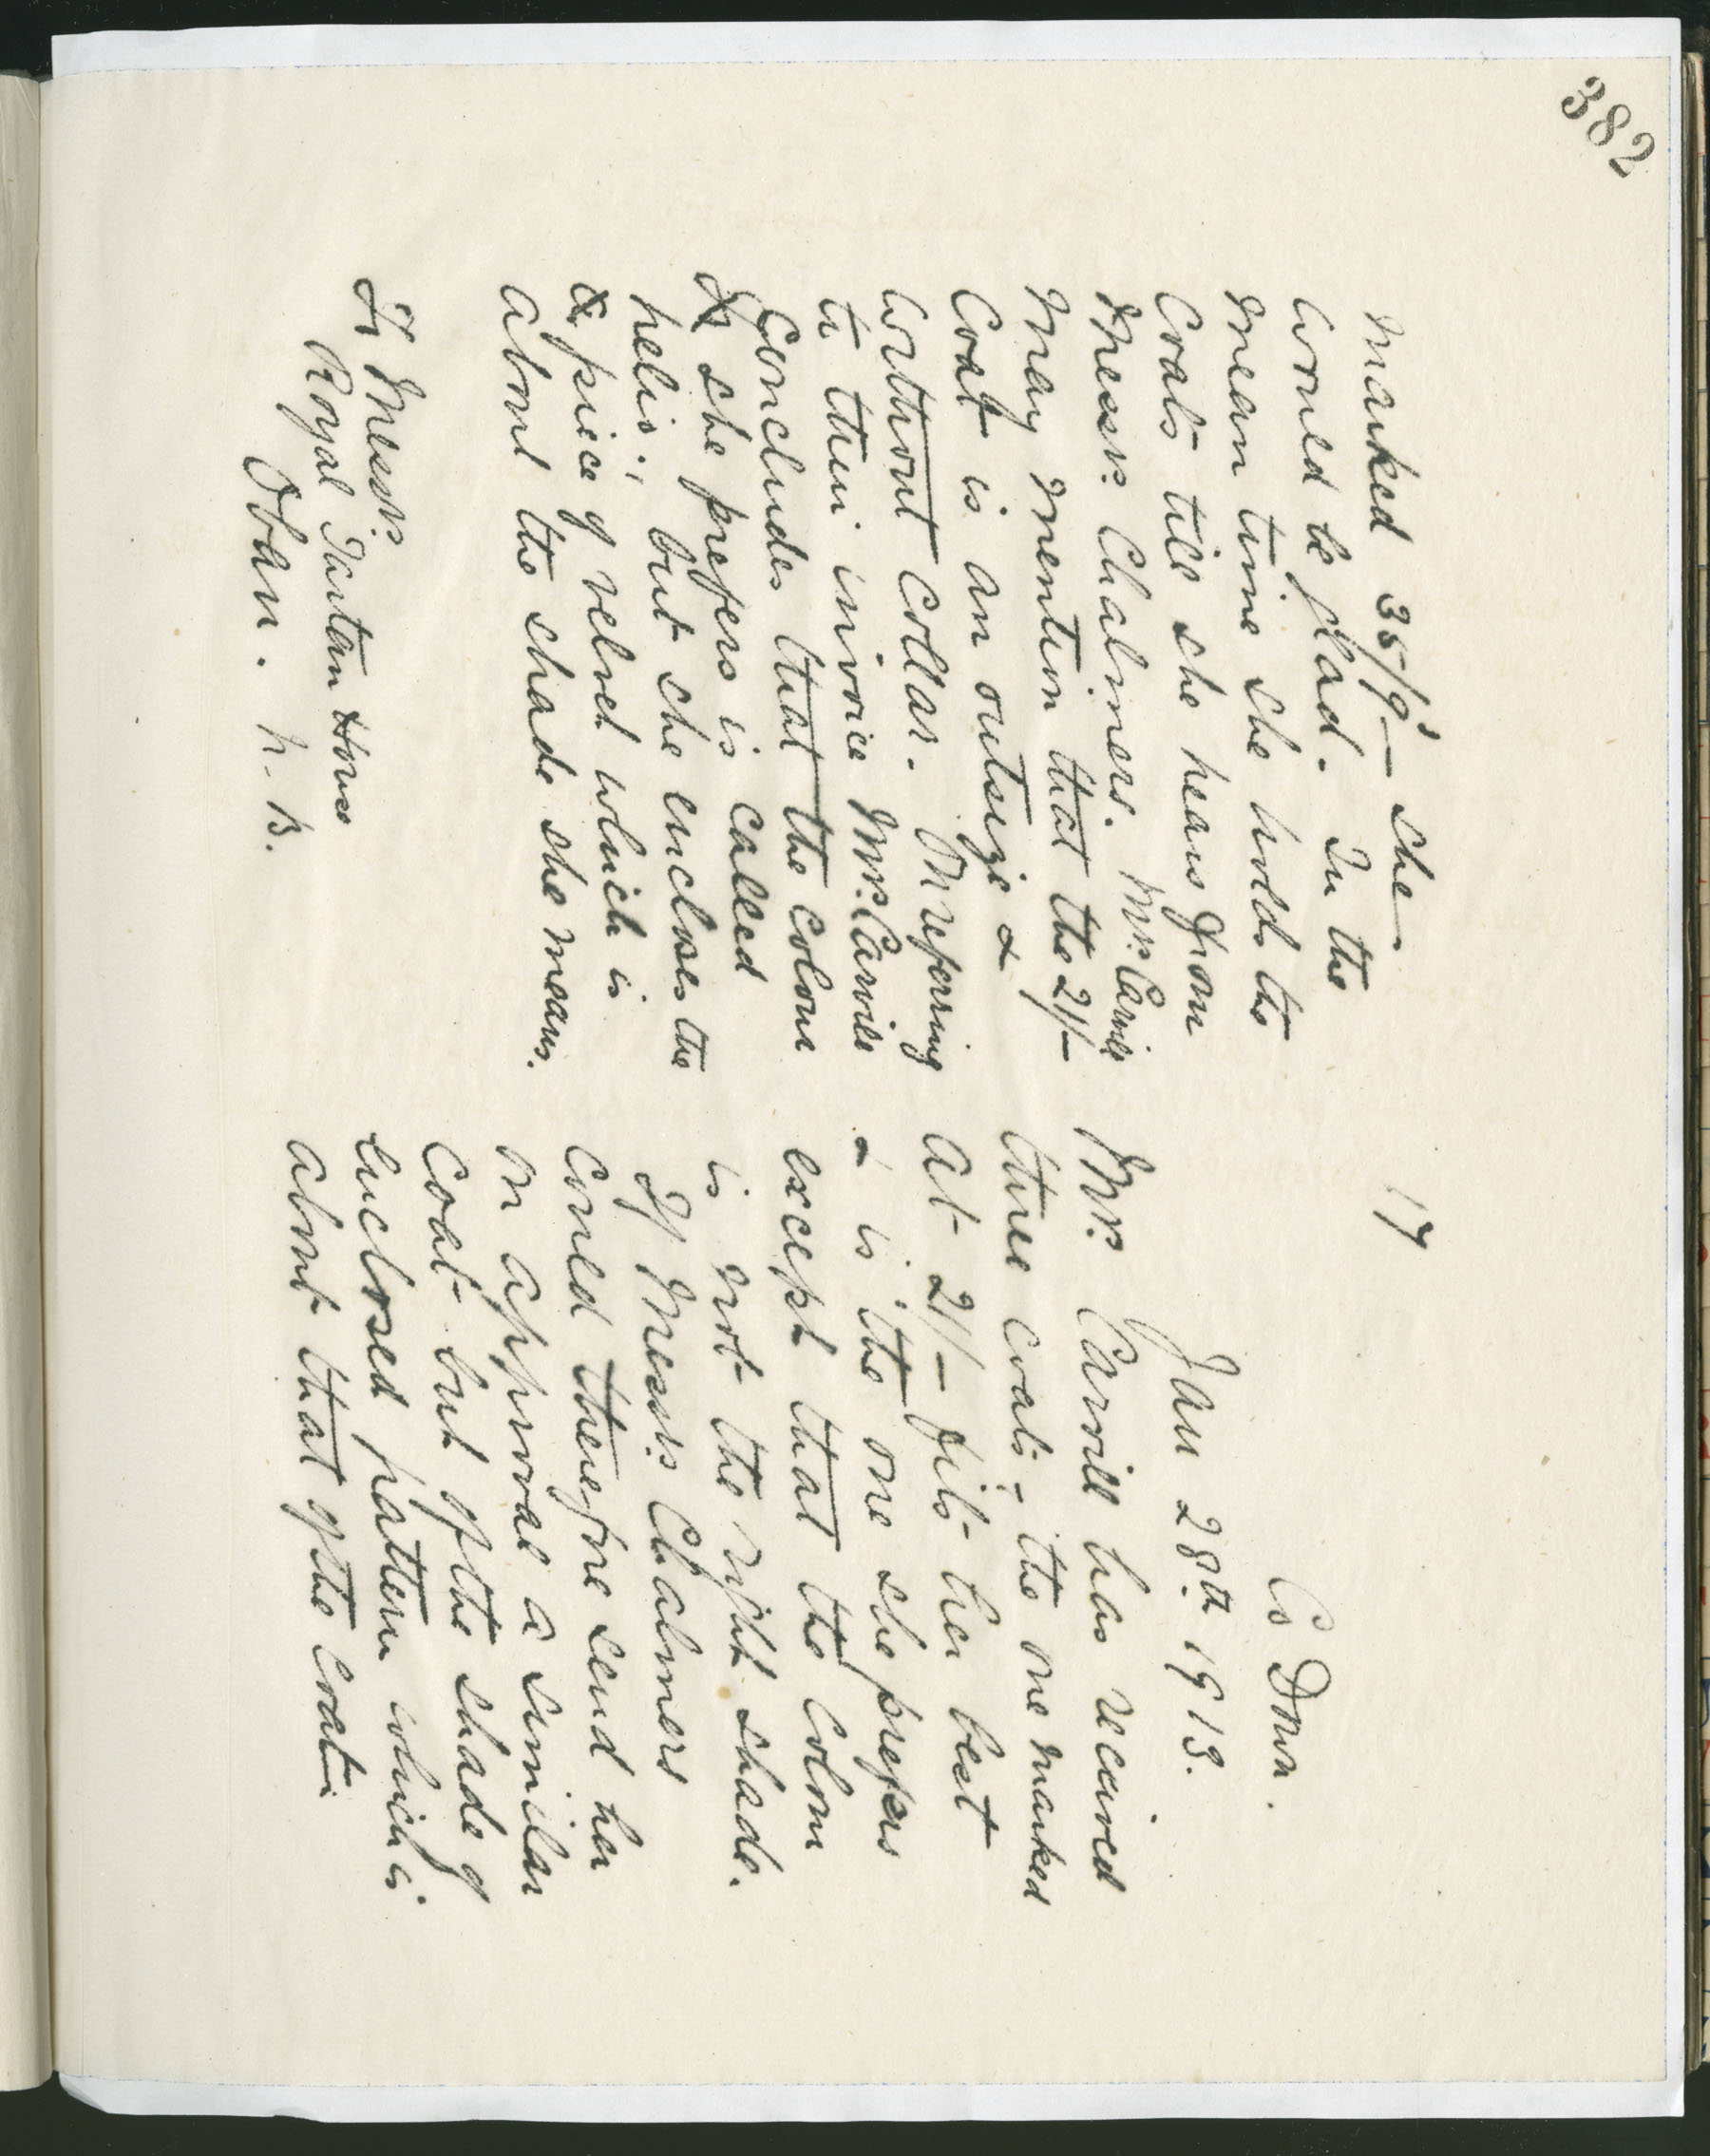 382
17
Co Down.
Jan 28th 1913.
Mrs. Carvill has received
three coats – the one marked
at 21/– fits her best
& is the one she prefers
except that the colour
is not the right shade.
If Messrs Chalmers
could therefore send her
on approval a similar
coat but of the shade of
enclosed pattern which is
about that of the coat
marked 35/9 – she
would be glad. In the
mean time she holds the
coats till she hears from
Messrs. Chalmers. Mrs. Carvill
may mention that the 21/–
coat is an outsize &
without collar. Referring
to their invoice Mrs. Carvill
concludes that the colour
she prefers is called
helio., but she encloses the
a piece of velvet which is
about the shade she means.
To Messrs.
Royal Tartan House
Oban. N.B.